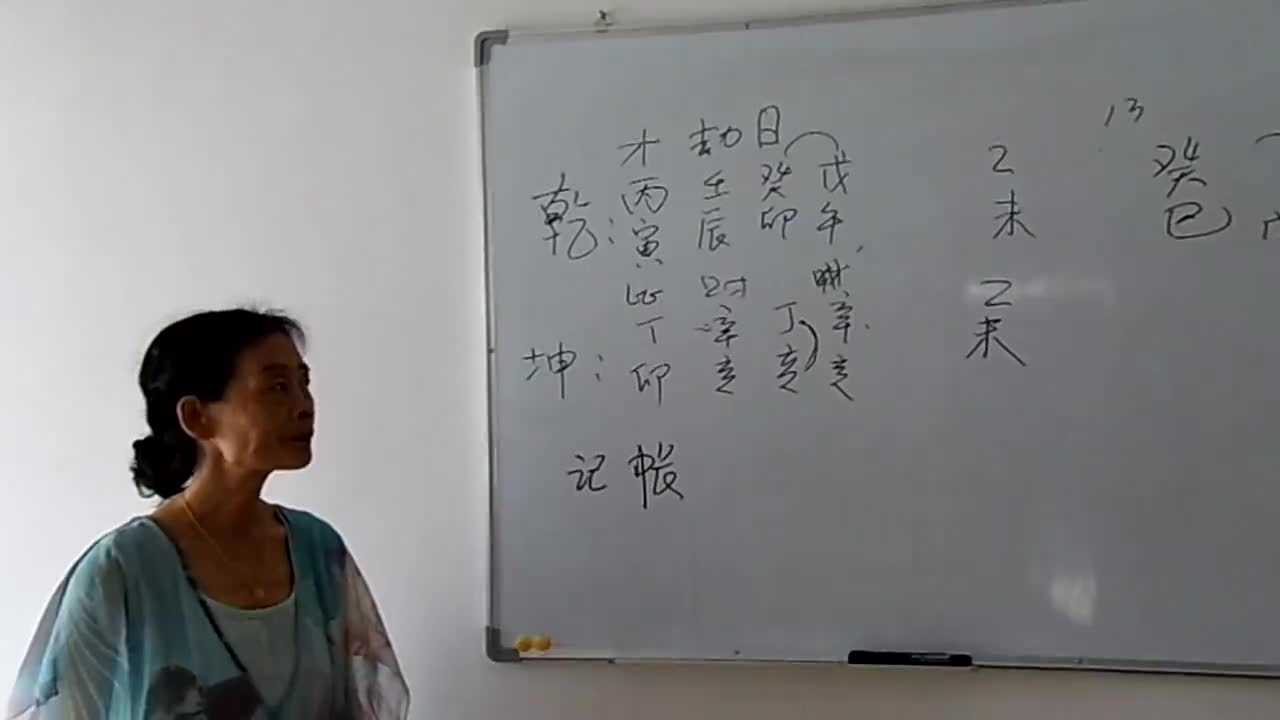 才 劫 日 13
乾： 丙 壬 癸 戊 乙 癸
寅 辰 卯 午 未 巳
比 财 财
坤： 丁 辛 丁 辛 乙
卯 亥 亥 亥 未
记帐